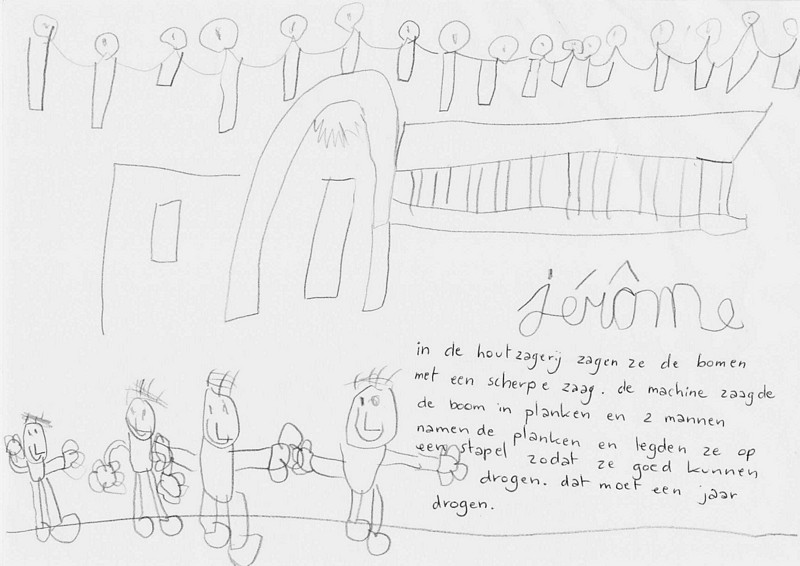 jérôme
in de houtzagerij zagen ze de bomen
met een scherpe zaag. de machine zaagde
de boom in planken en 2 mannen
namen de planken en legden ze op
een stapel zodat ze goed kunnen
drogen. dat moet een jaar
drogen.